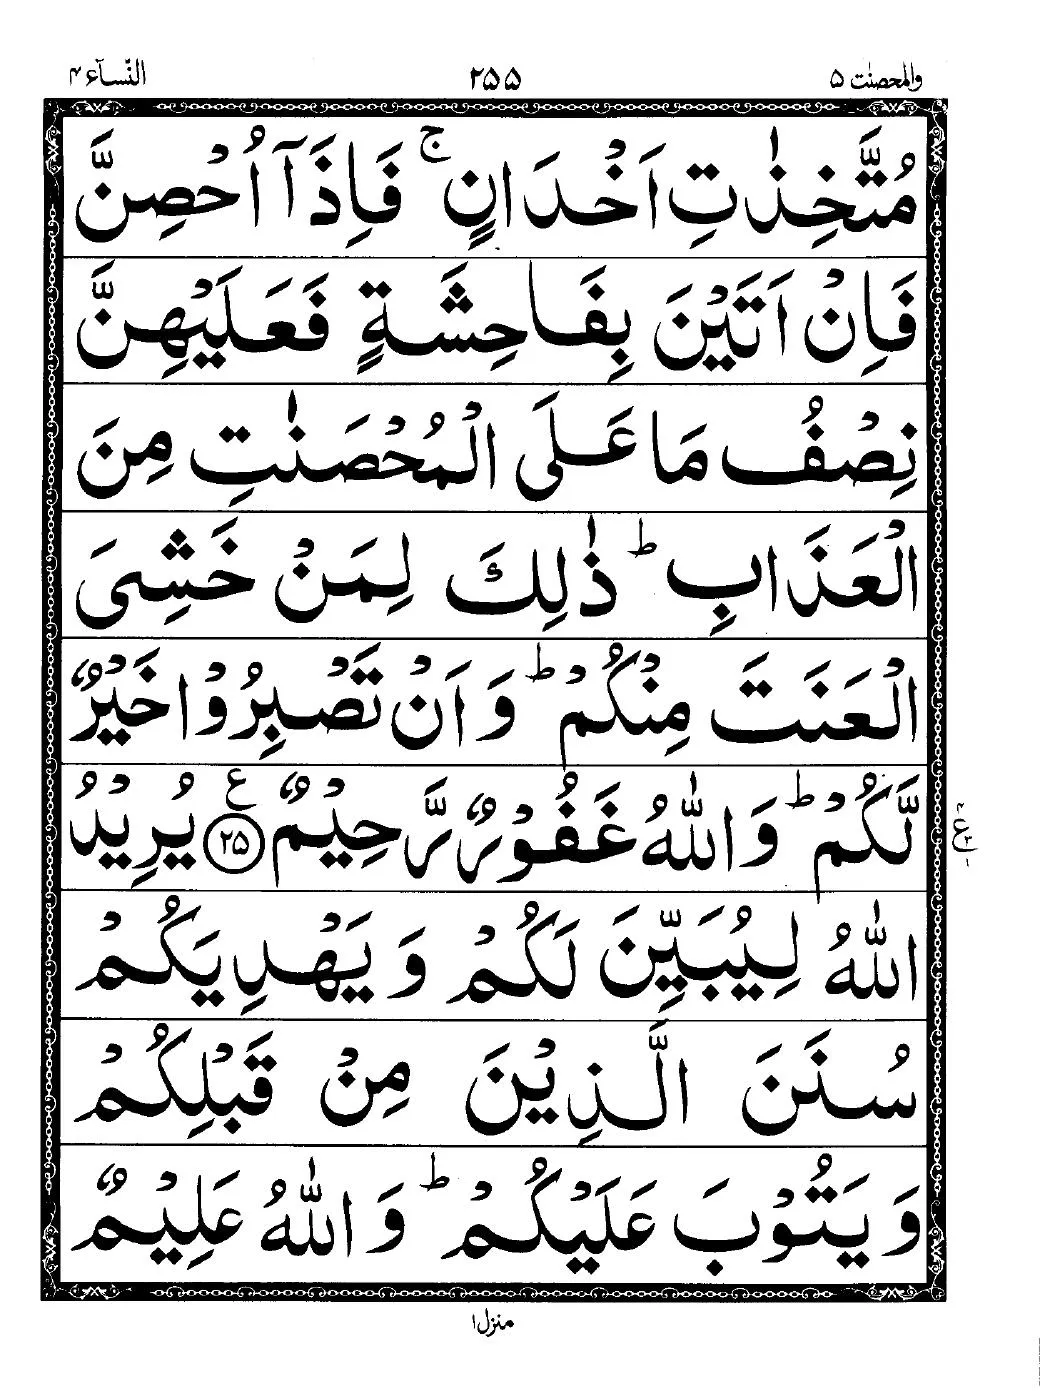 والمحصنٰت ۵
۲۵۵
النّسآء ۴
مُتَّخِذٰتِ اَخْدَانٍ ۚ فَاِذَآ اُحْصِنَّ
فَاِنْ اَتَيْنَ بِفَاحِشَةٍ فَعَلَيْهِنَّ
نِصْفُ مَا عَلَى الْمُحْصَنٰتِ مِنَ
الْعَذَابِ ؕ ذٰلِكَ لِمَنْ خَشِىَ
الْعَنَتَ مِنْكُمْ ؕ وَاَنْ تَصْبِرُوْا خَيْرٌ
لَّكُمْ ؕ وَاللّٰهُ غَفُوْرٌ رَّحِيْمٌ ۲۵ ع يُرِيْدُ
اللّٰهُ لِيُبَيِّنَ لَكُمْ وَيَهْدِيَكُمْ
سُنَنَ الَّذِيْنَ مِنْ قَبْلِكُمْ
وَيَتُوْبَ عَلَيْكُمْ ؕ وَاللّٰهُ عَلِيْمٌ
منزل ۱